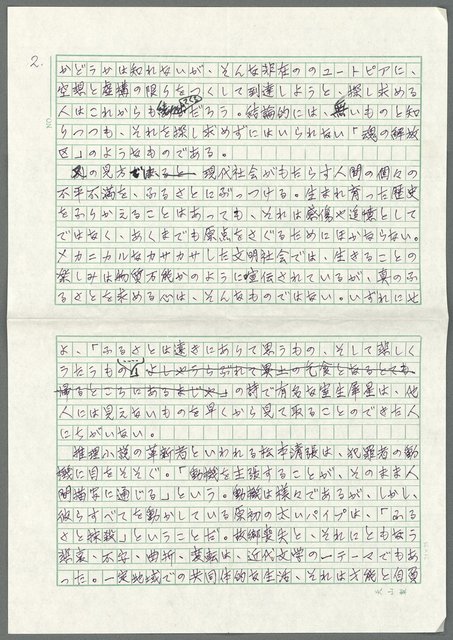 2.
NO.
かどうかは知れないが、そんな非在ののユートピアに、
空想と虚構の限りをつくして到達しようと、探し求める
人はこれからも続くだろう。結論的には、無いものと知
りつつも、それを探し求めずにはいられない「魂の解放
区」のようなものである。
の見方 現代社会がもたらす人間の個々の
不平不満を、ふるさとにぶっつける。生まれ育った歴史
をふりかえることはあっても、それは感傷や追憶として
ではなく、あくまでも原点をさぐるためにほかならない。
メカニカルなカサカサした文明社会では、生きることの
楽しみは物質万能かのように宣伝されているが、真のふ
るさとを求める心は、そんなものではない。いずれにせ
よ、「ふるさとは遠きにありて思うもの、そして悲しく
うたうもの よしやうらぶれて異土の乞食となるとても
帰るところにあるまじや」の詩で有名な室生犀星は、他
人には見えないものを早くから見て取ることのできた人
にちがいない。
推理小説の革新者といわれる松本清張は、犯罪者の動
機に目をそそぐ。「動機を主張することが、そのまま人
間描写に通じる」という。動機は様々であるが、しかし、
彼らすべてを動かしている原初の太いパイプは、「ふる
さと探求」ということだ。故郷喪失と、それにともなう
悲哀、不安、曲折、変転は、近代文学の一テーマでもあ
った。一定地域での共同体的な生活、それは才能と自負